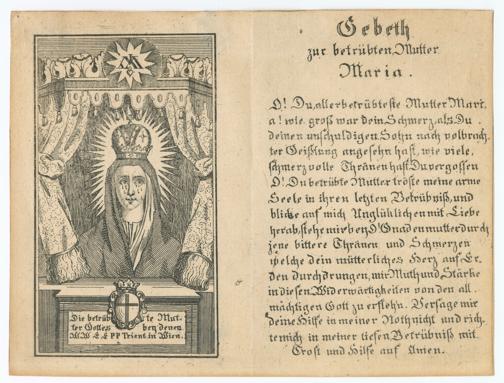 Die betrüb te Mut-
ter Gottes ben denen
W W E E P P Trient. in Wien.
Gebeth
zur betrübten Mutter
Maria.
O! Du allerbetrübteste Mutter Mari-
a! wie groß war dein Schmerz, als Du
deinen unschuldigen Sohn nach volbrach-
ter Geißlung angesehn hast, wie viele
schmerzvolle Thränen hast Du vergossen
O! Du betrübte Mutter tröste meine arme
Seele in ihren letzten Betrübniß, und
blicke auf mich Unglüklichen mit Liebe
herab, stehe mir bey, O! Gnadenmutter durch
jene bittere Thränen und Schmerzen
welche dein mütterliches Herz auf Er-
den durchdrungen, mir Muth und Stärke
in diesen Widerwärtigkeiten von den all-
mächtigen Gott zu erflehn. Versage mir
deine Hilfe in meiner Noth nicht und rich-
te mich in meiner tiefen Betrübniß mit
Trost und Hilfe auf Amen.